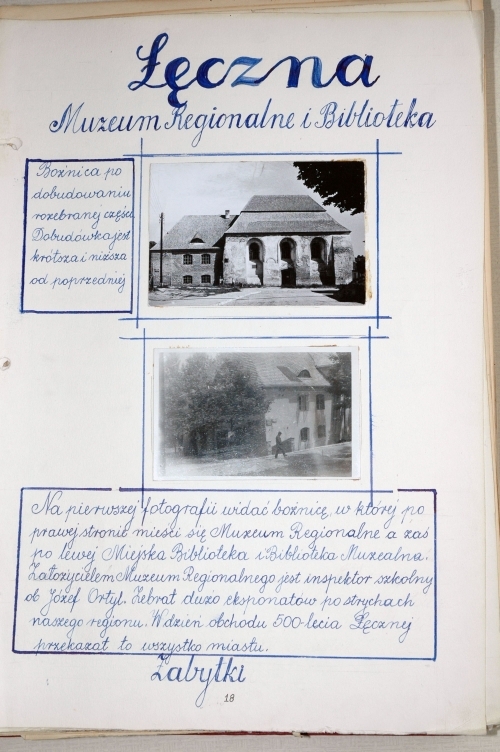 Łęczna
Muzeum Regionalne i Biblioteka
Bożnica po
dobudowaniu
rozebranej części
Dobudówka jest
krótsza i niższa
od poprzedniej
Na pierwszej fotografii widać bożnicę, w której po
prawej stronie mieści się Muzeum Regionalne a zaś
po lewej Miejska Biblioteka i Biblioteka Muzealna.
Założycielem Muzeum Regionalnego jest inspektor szkolny
ob Józef Ortyl. Zebrał dużo eksponatów po strychach
naszego regionu. W dzień obchodu 500-lecia Łęcznej
przekazał to wszystko miastu.
Zabytki
18